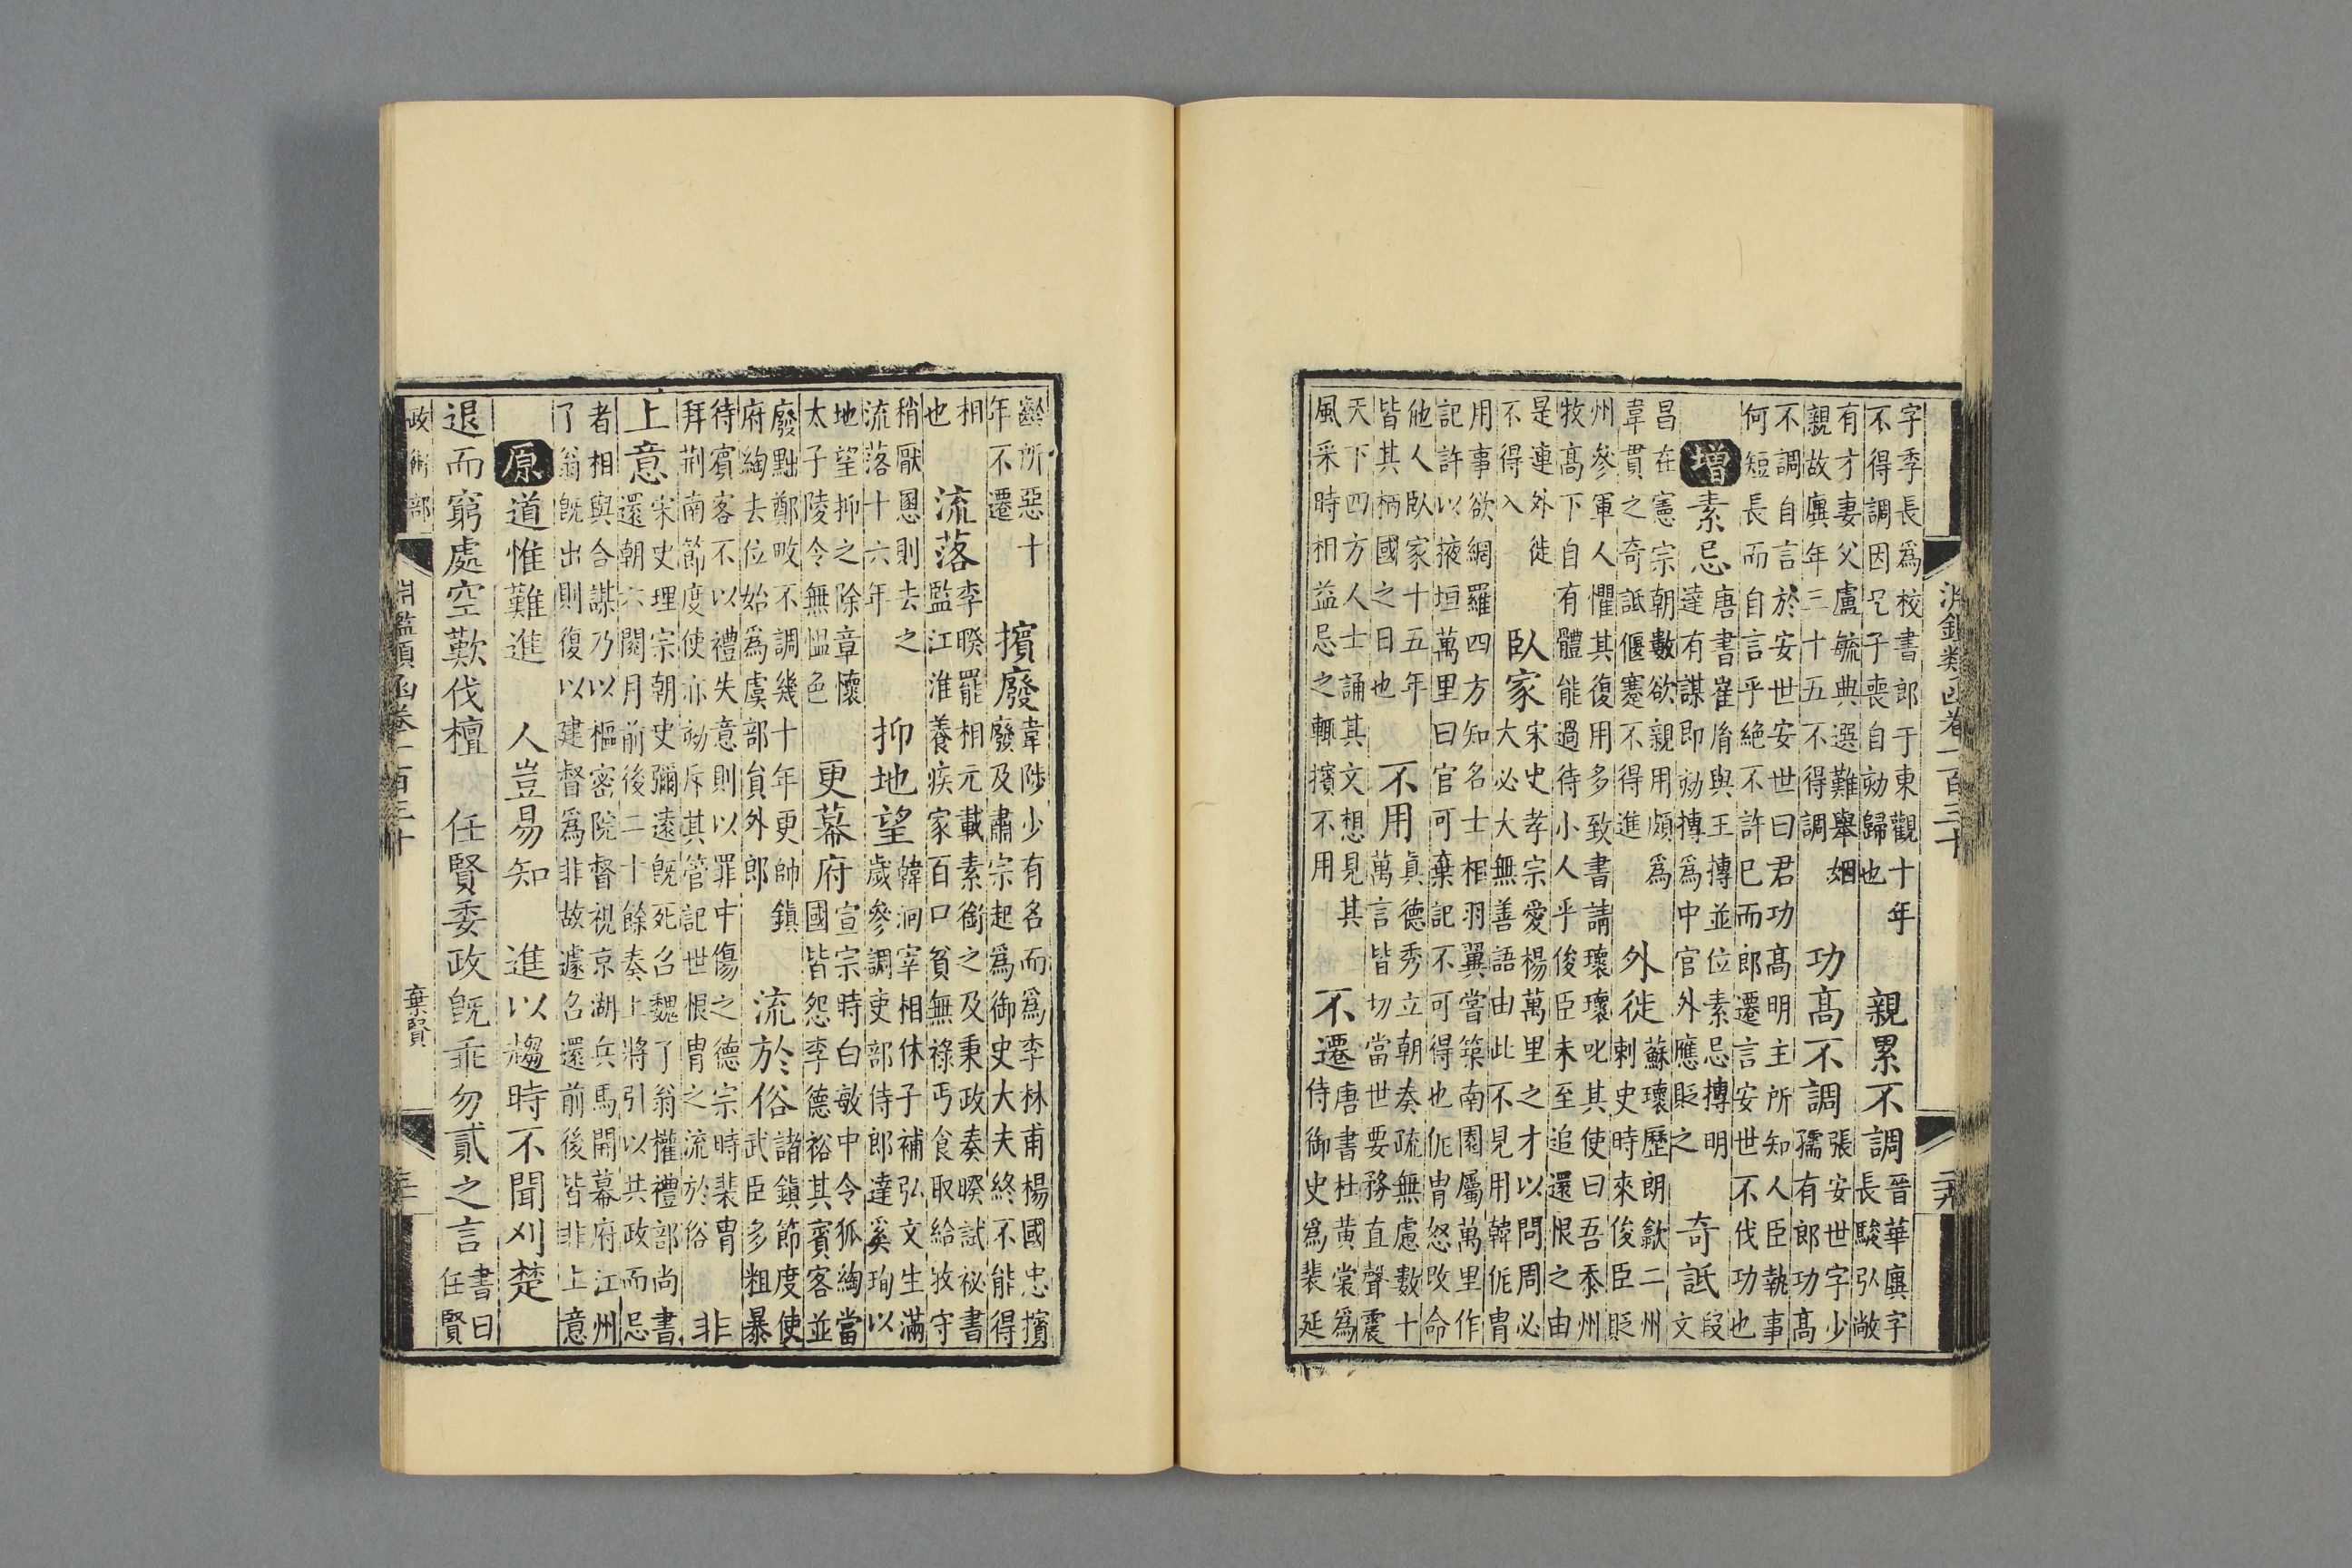 淵鑑類函卷一百三十
字季長爲校書郎于東觀十年
不得調因兄子喪自劾歸也
親累不調
晉華廙字
長駿弘敞
有才妻父盧毓典選難舉姻
親故廙年三十五不得調
功高不調
張安世字少
孺有郎功高
不調自言於安世安世曰君功高明主所知人臣執事
何短長而自言乎絶不許已而郎遷言安世不伐功也
增
素忌
唐書崔胤與王摶並位素忌摶明
達有謀即劾摶爲中官外應貶之
奇詆
段
文
昌在憲宗朝數欲親用頗爲
韋貫之奇詆偃蹇不得進
外徙
蘇瓌歷朗歙二州
刺史時來俊臣貶
州參軍人懼其復用多致書請瓌瓌叱其使曰吾忝州
牧高下自有體能過待小人乎俊臣未至追還恨之由
是連外徙
不得入
臥家
宋史孝宗愛楊萬里之才以問周必
大必大無善語由此不見用韓侂胄
用事欲網羅四方知名士相羽翼嘗築南園屬萬里作
記許以掖垣萬里曰官可棄記不可得也侂胄怒改命
他人臥家十五年
皆其柄國之日也
不用
眞德秀立朝奏疏無慮數十
萬言皆切當世要務直聲震
天下四方人士誦其文想見其
風采時相益忌之輒擯不用
不遷
唐書杜黄裳爲
侍御史爲裴延
齡所惡十
年不遷
擯廢
韋陟少有名而爲李林甫楊國忠擯
廢及肅宗起爲御史大夫終不能得
相
也
流落
李暌罷相元載素銜之及秉政奏暌試祕書
監江淮養疾家百口貧無祿丐食取給牧守
稍厭恩則去之
流落十六年
抑地望
韓洄宰相休子補弘文生滿
歲參調吏部侍郎達奚珣以
地望抑之除章懷
太子陵令無慍色
更幕府
宣宗時白敏中令狐綯當
國皆怨李德裕其賓客並
廢黜鄭畋不調幾十年更帥鎮
府綯去位始爲虞部員外郎
流於俗
諸鎮節度使
武臣多粗暴
待賓客不以禮失意則以罪中傷之德宗時裴胄
拜荆南節度使亦劾斥其管記世恨胄之流於俗
非
上意
宋史理宗朝史彌遠旣死召魏了翁權禮部尚書
還朝六閱月前後二十餘奏上將引以共政而忌
者相與合謀乃以樞密院督視京湖兵馬開幕府江州
了翁旣出則復以建督爲非故遽召還前後皆非上意
原
道惟難進 人豈易知 進以趨時不聞刈楚
退而窮處空歎伐檀 任賢委政旣乖勿貳之言
書曰
任賢
政術部
淵鑑類函卷一百三十
棄賢